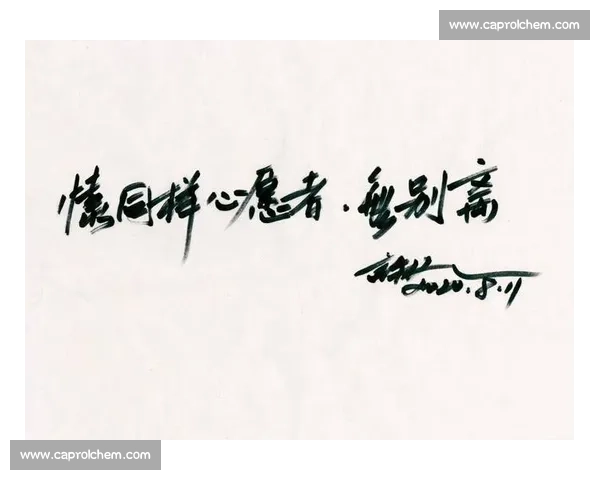 www.caprolchem.com
懷同样心愿者.無别离
2020.8.11
www.caprolchem.com